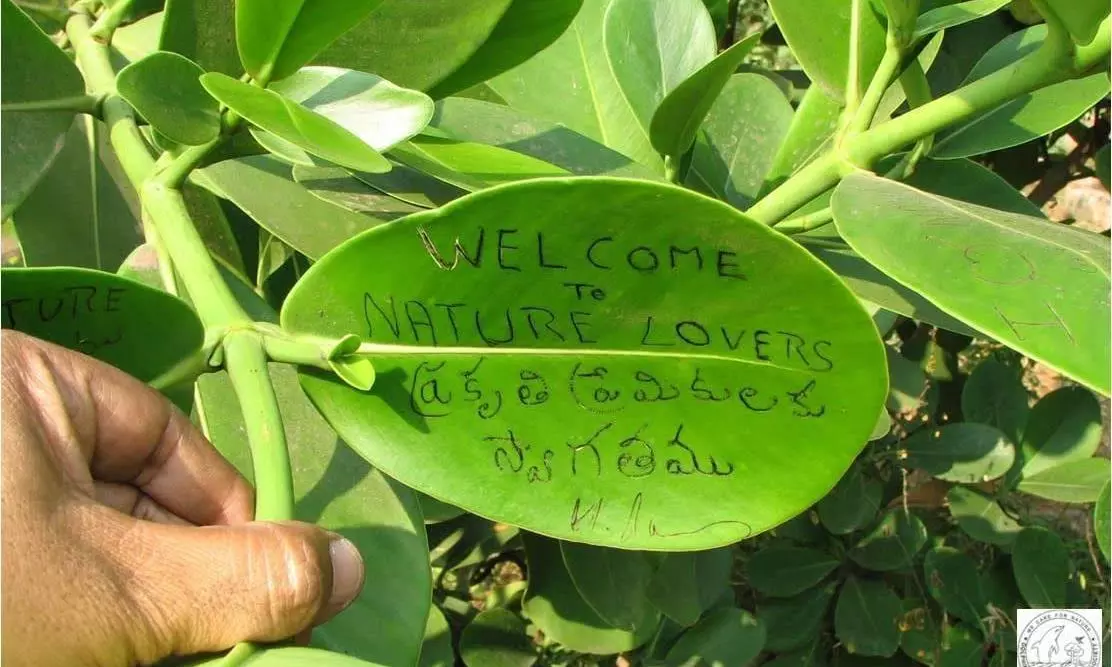 WELCOME
TO
NATURE LOVERS
ప్రకృతి ప్రేమికులకు
స్వాగతము
TURE
C
H
WE CARE FOR NATURE